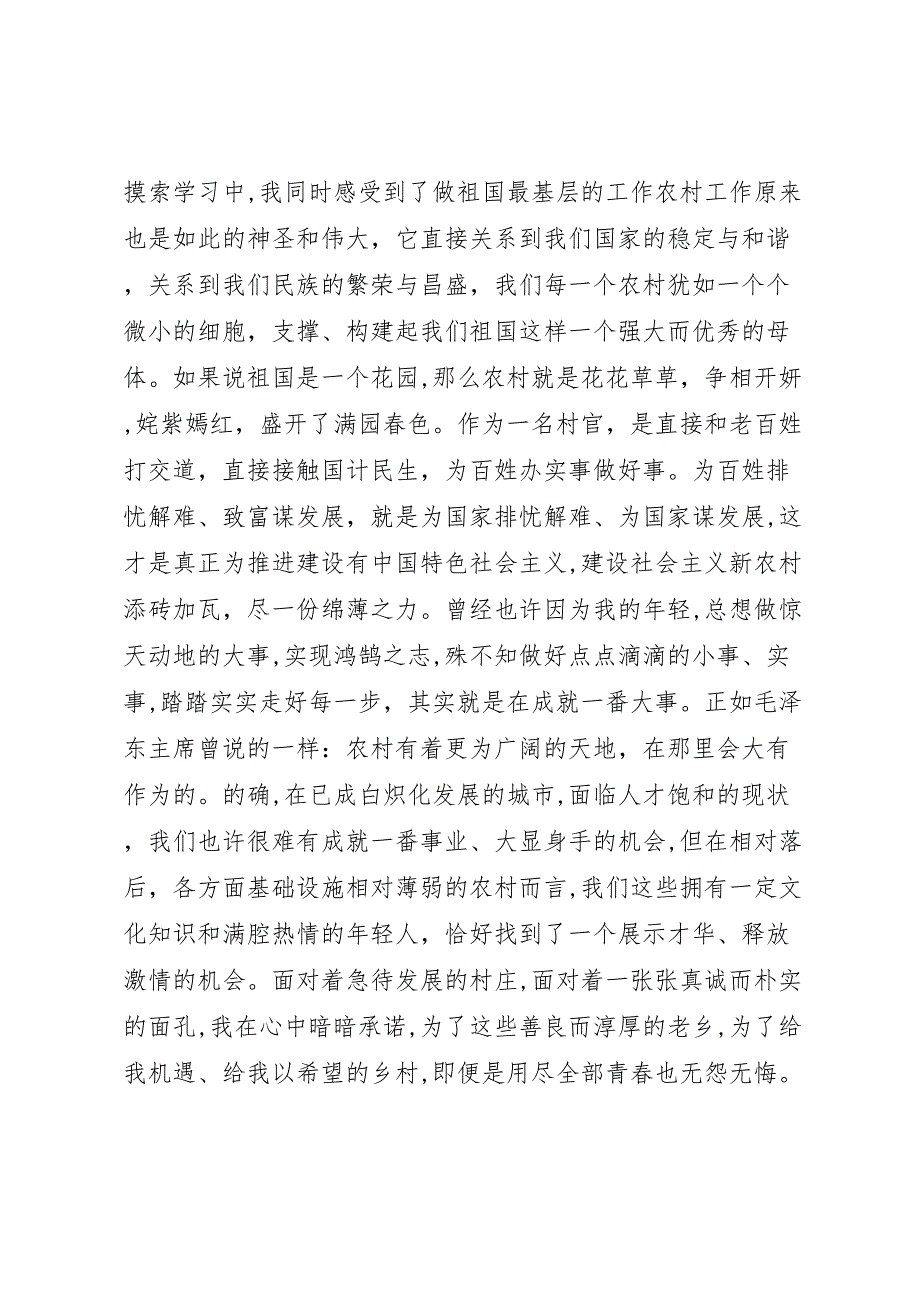 摸索学习中,我同时感受到了做祖国最基层的工作农村工作原来
也是如此的神圣和伟大，它直接关系到我们国家的稳定与和谐
，关系到我们民族的繁荣与昌盛，我们每一个农村犹如一个个
微小的细胞，支撑、构建起我们祖国这样一个强大而优秀的母
体。如果说祖国是一个花园,那么农村就是花花草草，争相开妍
,姹紫嫣红，盛开了满园春色。作为一名村官，是直接和老百姓
打交道，直接接触国计民生，为百姓办实事做好事。为百姓排
忧解难、致富谋发展，就是为国家排忧解难、为国家谋发展,这
才是真正为推进建设有中国特色社会主义,建设社会主义新农村
添砖加瓦，尽一份绵薄之力。曾经也许因为我的年轻,总想做惊
天动地的大事,实现鸿鹄之志,殊不知做好点点滴滴的小事、实
事,踏踏实实走好每一步，其实就是在成就一番大事。正如毛泽
东主席曾说的一样：农村有着更为广阔的天地，在那里会大有
作为的。的确,在已成白炽化发展的城市,面临人才饱和的现状
，我们也许很难有成就一番事业、大显身手的机会,但在相对落
后，各方面基础设施相对薄弱的农村而言,我们这些拥有一定文
化知识和满腔热情的年轻人，恰好找到了一个展示才华、释放
激情的机会。面对着急待发展的村庄,面对着一张张真诚而朴实
的面孔,我在心中暗暗承诺,为了这些善良而淳厚的老乡,为了给
我机遇、给我以希望的乡村,即便是用尽全部青春也无怨无悔。